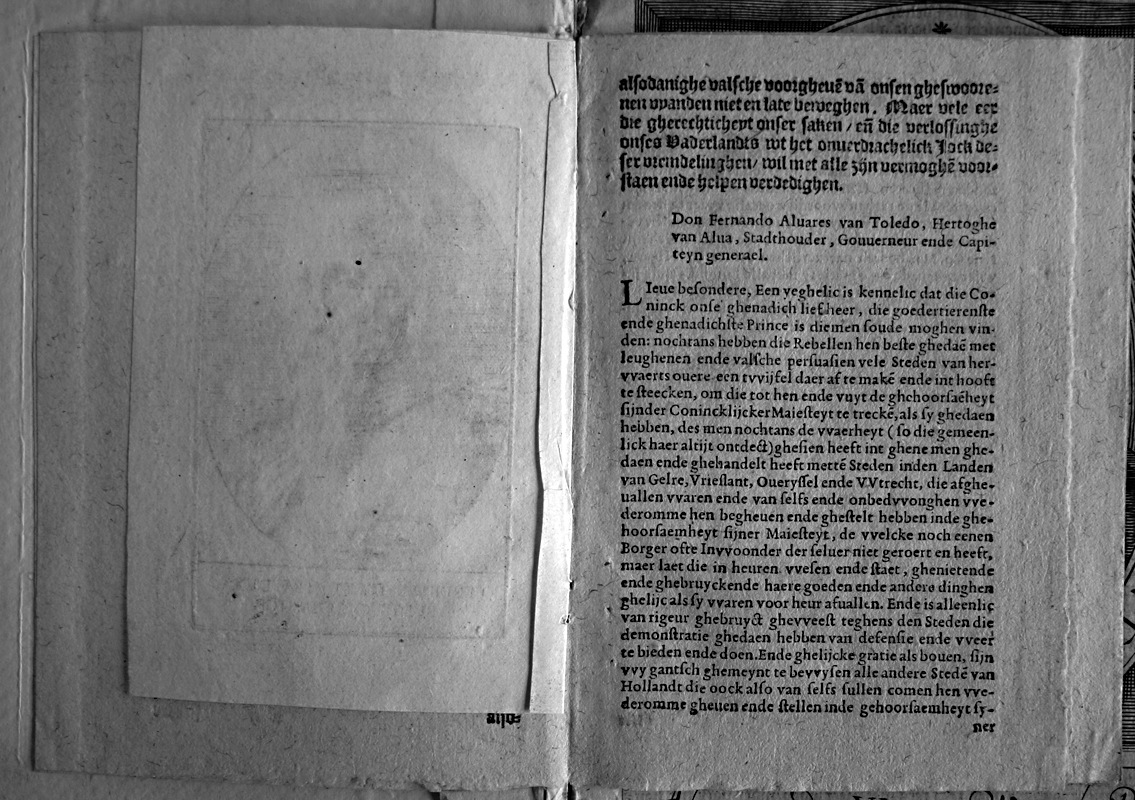 alſo
alſodanighe valſche voorgheuẽ vã onſen gheſwoore⸗
nen vyanden niet en late beweghen. Maer vele eer
die gherechticheyt onſer ſaken / eñ die verloſſinghe
onſes Vaderlandts wt het onuerdrachelick Jock de⸗
ſer vremdelinghen / wil met alle zijn vermoghẽ voor⸗
ſtaen ende helpen verdedighen.
Don Fernando Aluares van Toledo, Hertoghe
van Alua, Stadthouder, Gouuerneur ende Capi-
teyn generael.
LIeue beſondere, Een yeghelic is kennelic dat die Co-
ninck onſe ghenadich lief heer, die goedertierenſte
ende ghenadichſte Prince is diemen ſoude moghen vin-
den: nochtans hebben die Rebellen hen beſte ghedaẽ met
leughenen ende valſche perſuaſien vele Steden van her-
vvaerts ouere een tvvijfel daer af te makẽ ende int hooft
te ſteecken, om die tot hen ende vuyt de ghehoorſaẽheyt
ſijnder Conincklijcker Maieſteyt te treckẽ, als ſy ghedaen
hebben, des men nochtans de vvaerheyt (ſo die gemeen-
lick haer altijt ontdect) gheſien heeft int ghene men ghe-
daen ende ghehandelt heeft mettẽ Steden inden Landen
van Gelre, Vrieſlant, Oueryſſel ende VVtrecht, die afghe-
uallen vvaren ende van ſelfs ende onbedvvonghen vve-
deromme hen begheuen ende gheſtelt hebben inde ghe-
hoorſaemheyt ſijner Maieſteyt, de vvelcke noch eenen
Borger ofte Invvoonder der ſeluer niet geroert en heeft,
maer laet die in heuren vveſen ende ſtaet, ghenietende
ende ghebruyckende haere goeden ende andere dinghen
ghelijc als ſy vvaren voor heur afuallen. Ende is alleenlic
van rigeur ghebruyct ghevveeſt teghens den Steden die
demonſtratie ghedaen hebben van defenſie ende vveer
te bieden ende doen. Ende ghelijcke gratie als bouen, ſijn
vvy gantſch ghemeynt te bevvyſen alle andere Stedẽ van
Hollandt die oock alſo van ſelfs ſullen comen hen vve-
deromme gheuen ende ſtellen inde gehoorſaemheyt ſy-
ner